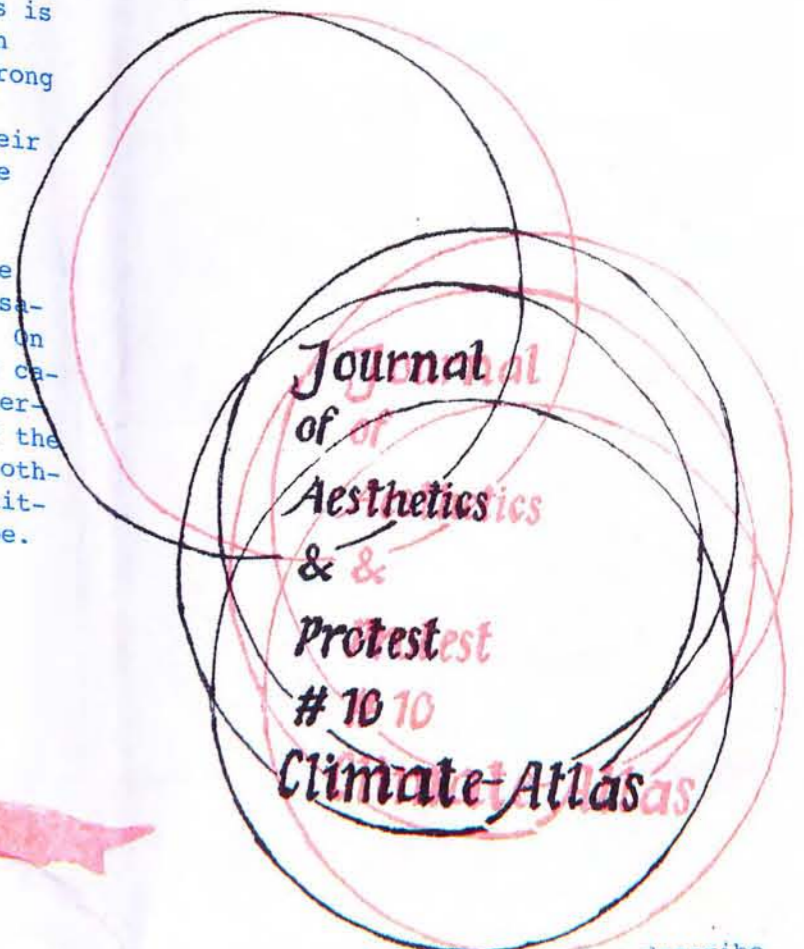 s is
rong
eir
e
e
sa-
On
ca-
er-
the
oth-
it-
e.
Journal
of
Aesthetics
&
Protest
# 10
Climate-Atlas